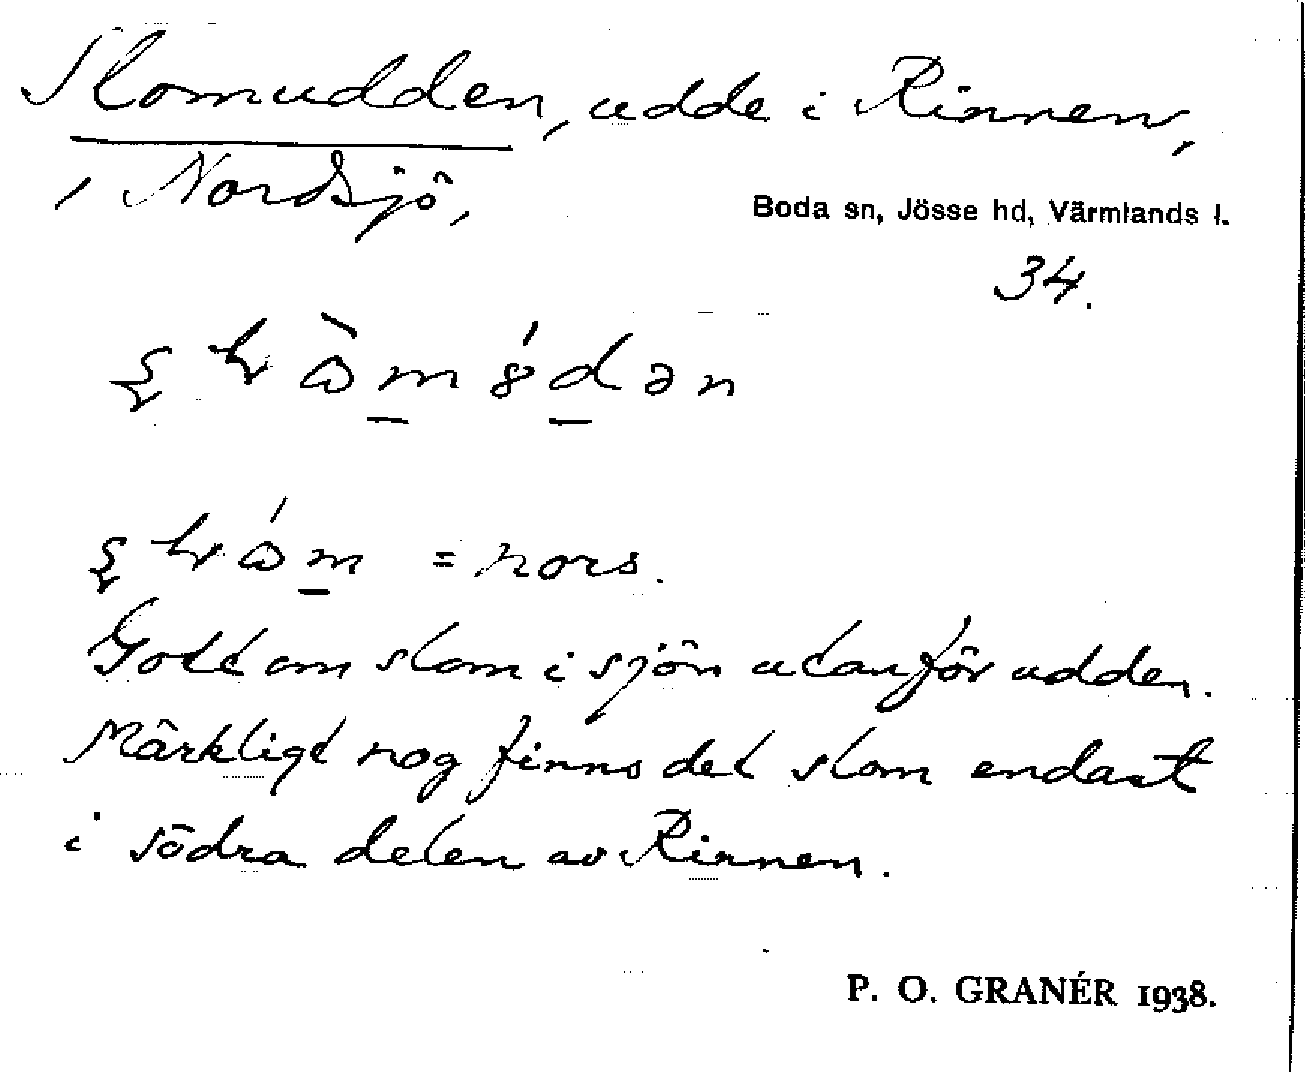 Slomudden, udde i Rinnen,
i Nordsjö,
Boda sn, Jösse hd, Värmlands l.
34.
= nors.
Gott om slom i sjön utanför udden.
Märkligt nog finns det slom endast
i södra delen av Rinnen.
P. O. GRANÉR 1938.